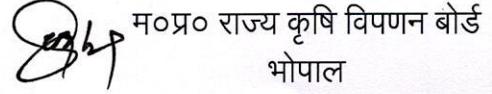 म०प्र० राज्य कृषि विपणन बोर्ड
भोपाल